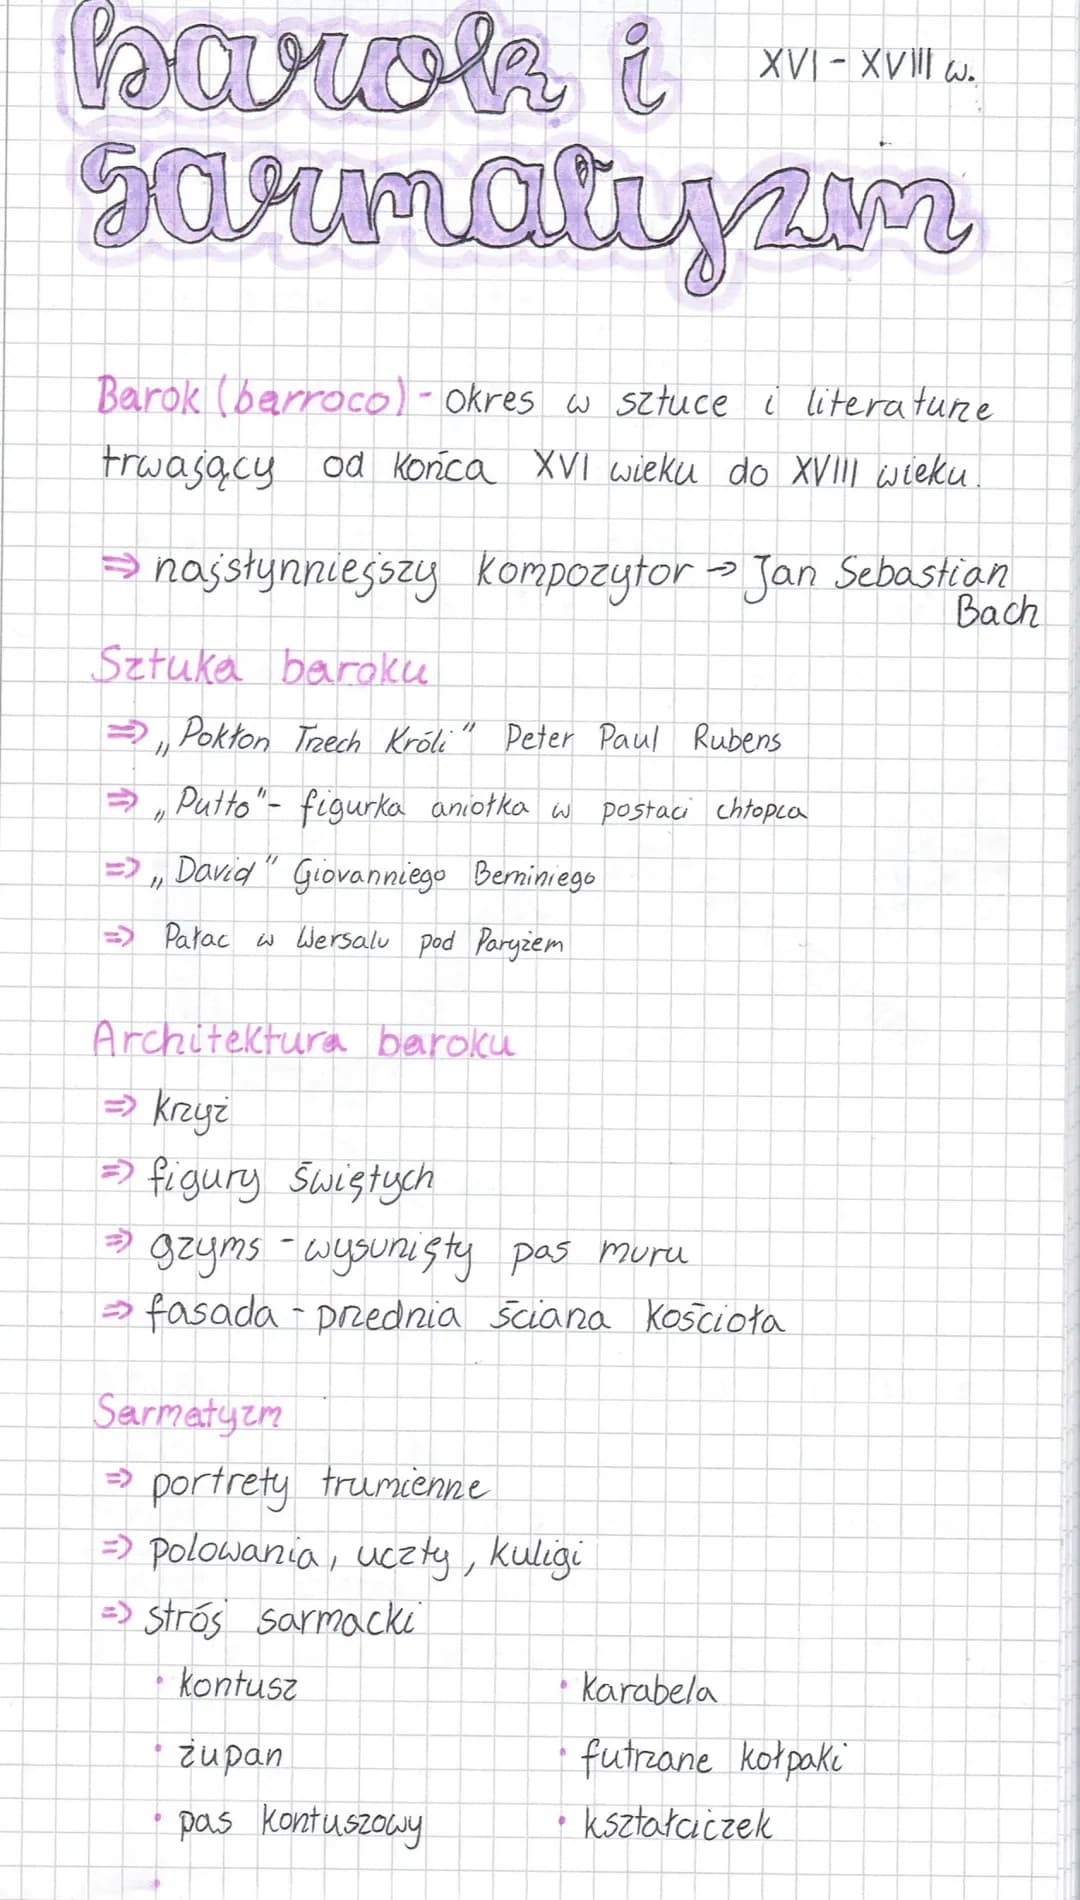 barok i XVI - XVIII w.
sarmatyzm
Barok (barroco) - okres w sztuce i literaturze
trwający od końca XVI wieku do XVIII wieku.
⇒ najsłynniejszy kompozytor → Jan Sebastian
Bach
Sztuka baroku
⇒ „Pokłon Trzech Króli" Peter Paul Rubens
⇒ „Putto" - figurka aniołka w postaci chłopca
⇒ „David" Giovanniego Berniniego
⇒ Pałac w Wersalu pod Paryżem
Architektura baroku
⇒ krzyż
⇒ figury świętych
⇒ gzyms - wysunięty pas muru
⇒ fasada - przednia ściana kościoła
Sarmatyzm
⇒ portrety trumienne
⇒ polowania, uczty, kuligi
⇒ strój sarmacki
• kontusz • karabela
• żupan • futrzane kołpaki
• pas kontuszowy • kształciczek